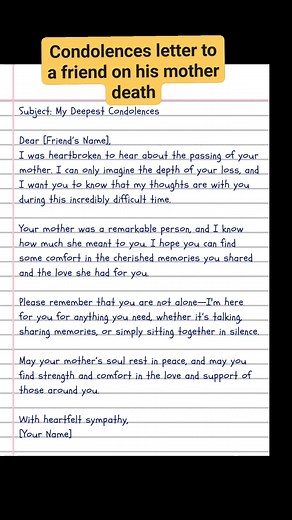 Condolences letter to
a friend on his mother
death
Subject: My Deepest Condolences
Dear [Friend's Name],
I was heartbroken to hear about the passing of your
mother. I can only imagine the depth of your loss, and
I want you to know that my thoughts are with you
during this incredibly difficult time.
Your mother was a remarkable person, and I know
how much she meant to you. I hope you can find
some comfort in the cherished memories you shared
and the love she had for you.
Please remember that you are not alone—I'm here
for you for anything you need, whether it's talking,
sharing memories, or simply sitting together in silence.
May your mother's soul rest in peace, and may you
find strength and comfort in the love and support of
those around you.
With heartfelt sympathy,
[Your Name]